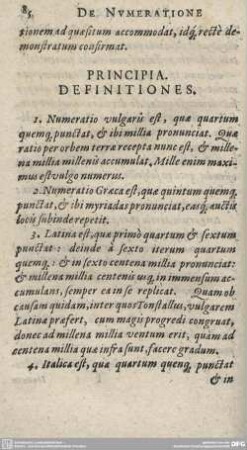 85 DE NVMERATIONE
tionem ad quæsitum accommodat, idq́, rectè de-
monstratum confirmat.
PRINCIPIA.
DEFINITIONES.
1. Numeratio vulgaris est, quæ quartum
quemq, punctat, & ibi millia pronunciat. Quæ
ratio per orbem terræ recepta nunc est, & mille-
na millia millenis accumulat. Mille enim maxi-
mus est vulgo numerus.
2. Numeratio Græca est, quæ quintum quemq,
punctat, & ibi myriadas pronunciat, easq́, auctis
locis subinde repetit.
3. Latina est, quæ primò quartum & sextum
punctat: deinde à sexto iterum quartum
quemq,: & in sexto centena millia pronunciat:
& millena millia centenis usq, in immensum ac-
cumulans, semper ea in se replicat. Quam ob
causam quidam, inter quos Tonstallus, vulgarem
Latinæ præfert, cum magis progredi congruat,
donec ad millena millia ventum erit, quàm ad
centena millia quæ infra sunt, facere gradum.
4. Italica est, quæ quartum quenq, punctat
& in